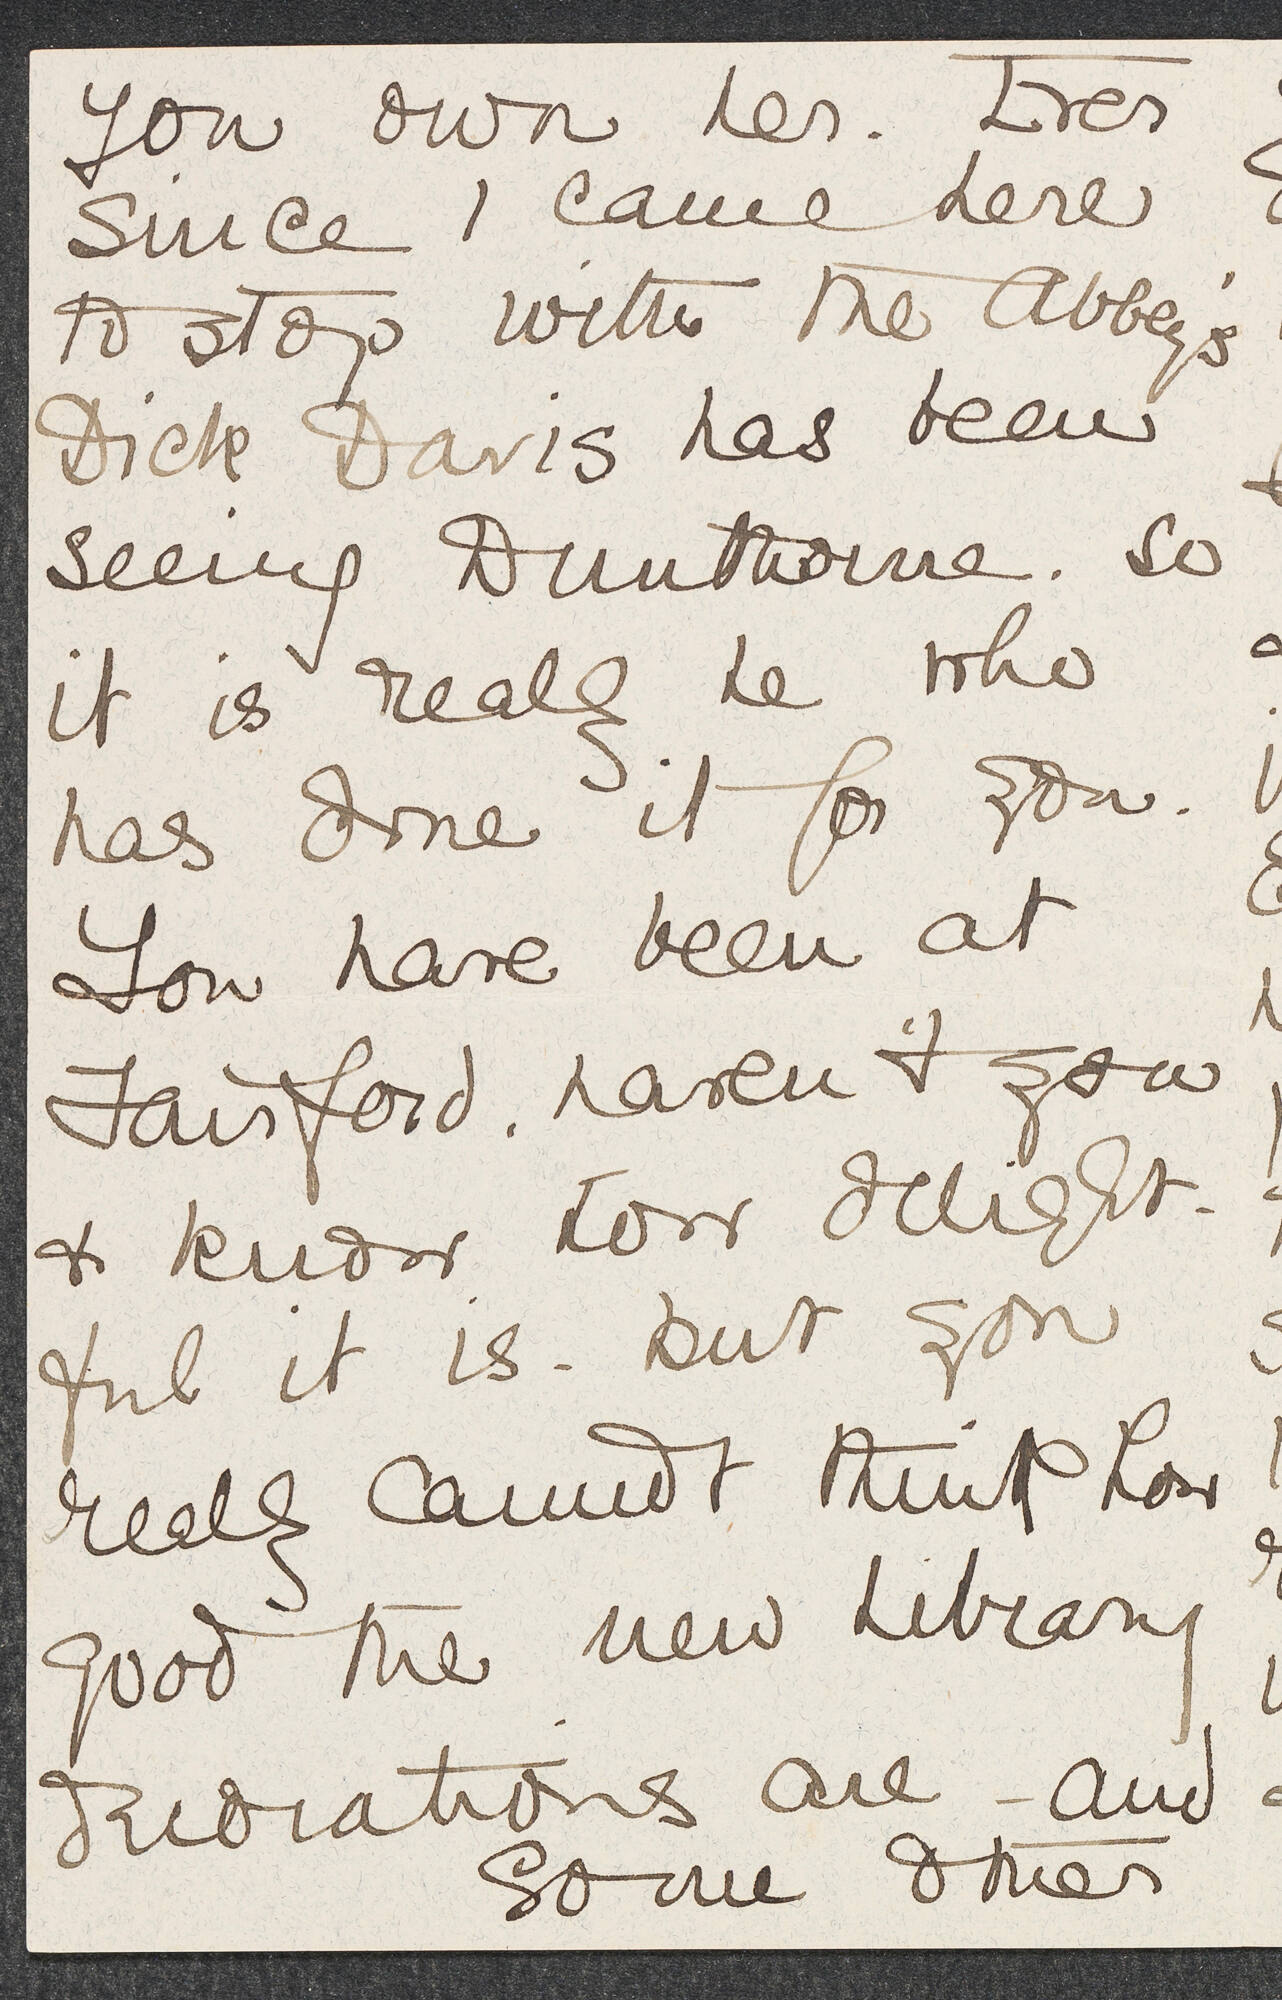 You own her. Ever
Since I came here
to stop with the Abbey's
Dick Davis has been
seeing Dunthorne. So
it is really he who
has done it for you.
You have been at
Fairford, haven't you
& know how delight-
ful it is - but you
really cannot think how
good the new Library
decorations are - and
Some other